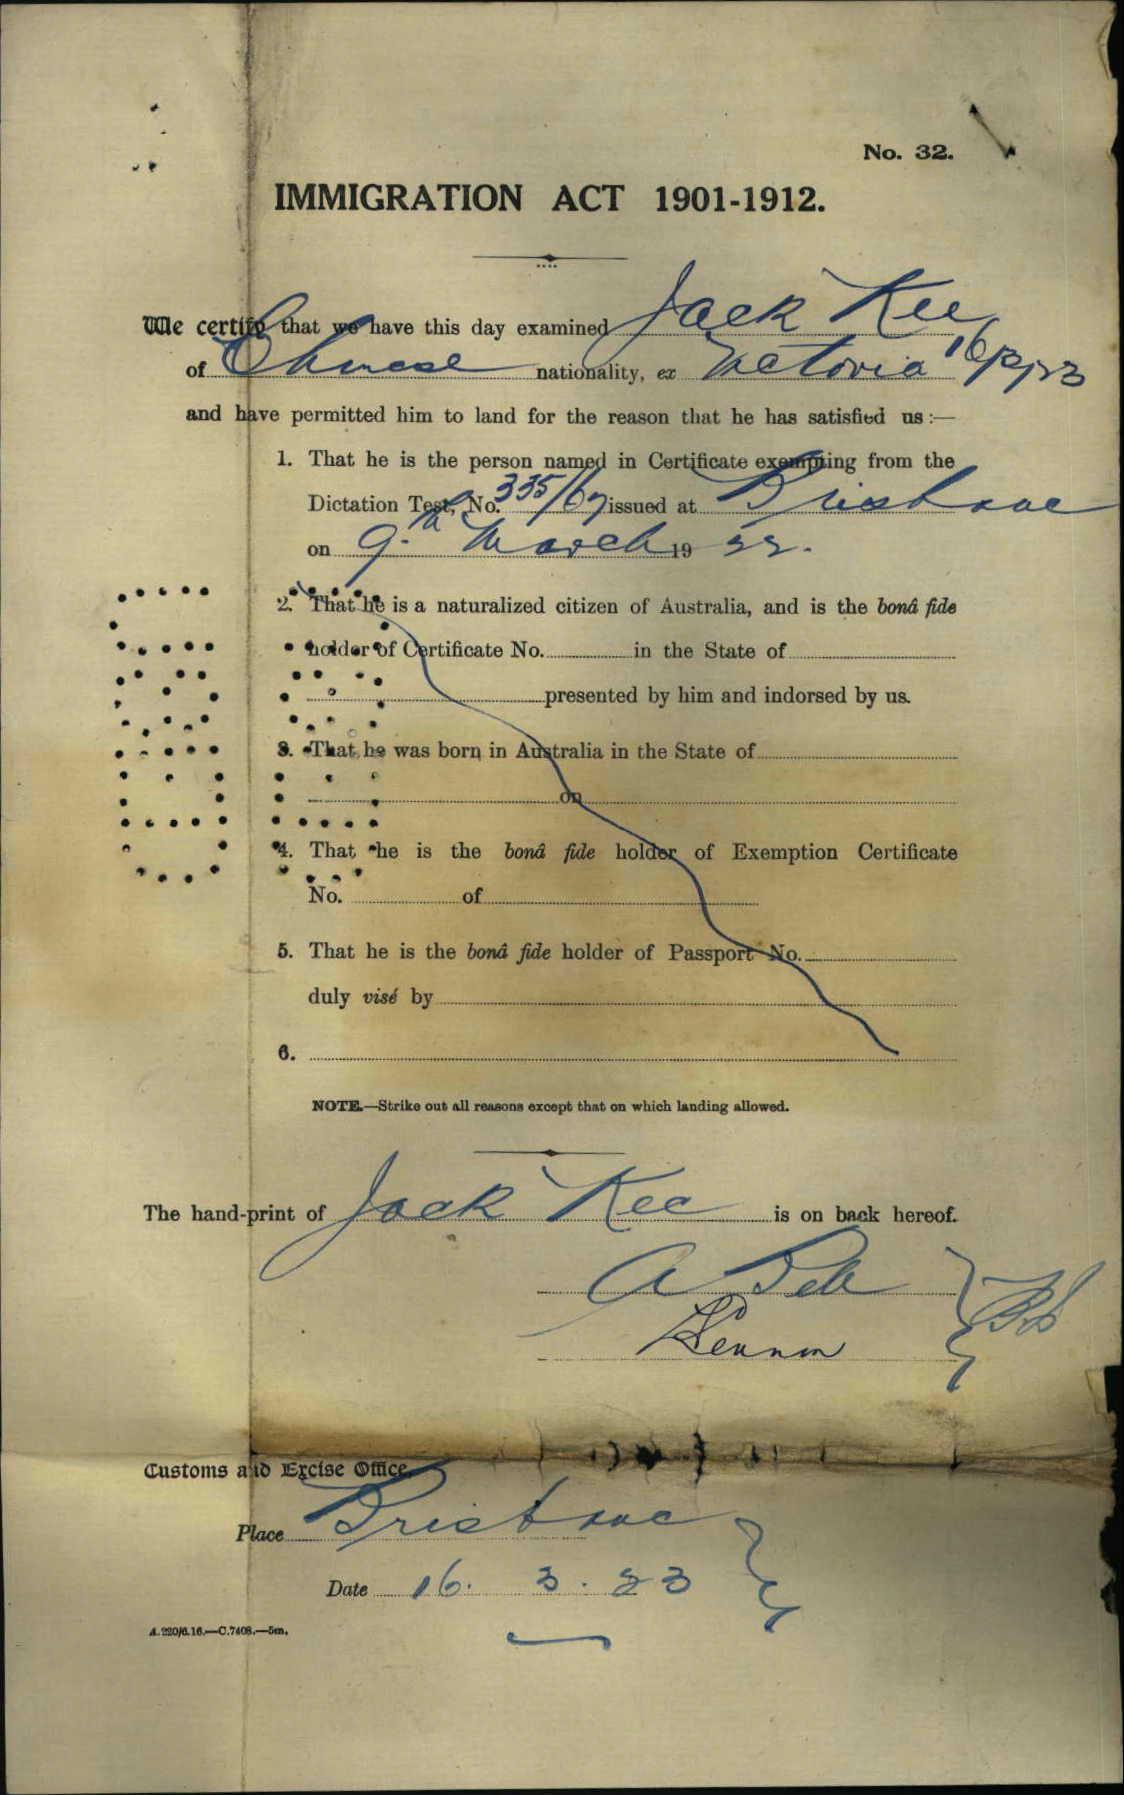 No. 32.
IMMIGRATION ACT 1901-1912.
We certify that we have this day examined Jack Kee
of Chinese nationality, ex Victoria 16/3/23
and have permitted him to land for the reason that he has satisfied us :—
1. That he is the person named in Certificate exempting from the
Dictation Test, No. 335/67 issued at Brisbane
on 9th March 19 22.
2. That he is a naturalized citizen of Australia, and is the bonâ fide
holder of Certificate No. in the State of
presented by him and indorsed by us.
3. That he was born in Australia in the State of
on
4. That he is the bonâ fide holder of Exemption Certificate
No. of
5. That he is the bonâ fide holder of Passport No.
duly visé by
6.
NOTE.—Strike out all reasons except that on which landing allowed.
The hand-print of Jack Kee is on back hereof.
A
Customs and Excise Office,
Place Brisbane
Date 16. 3. 23
A.220/6.16.—C.7408.—5m.